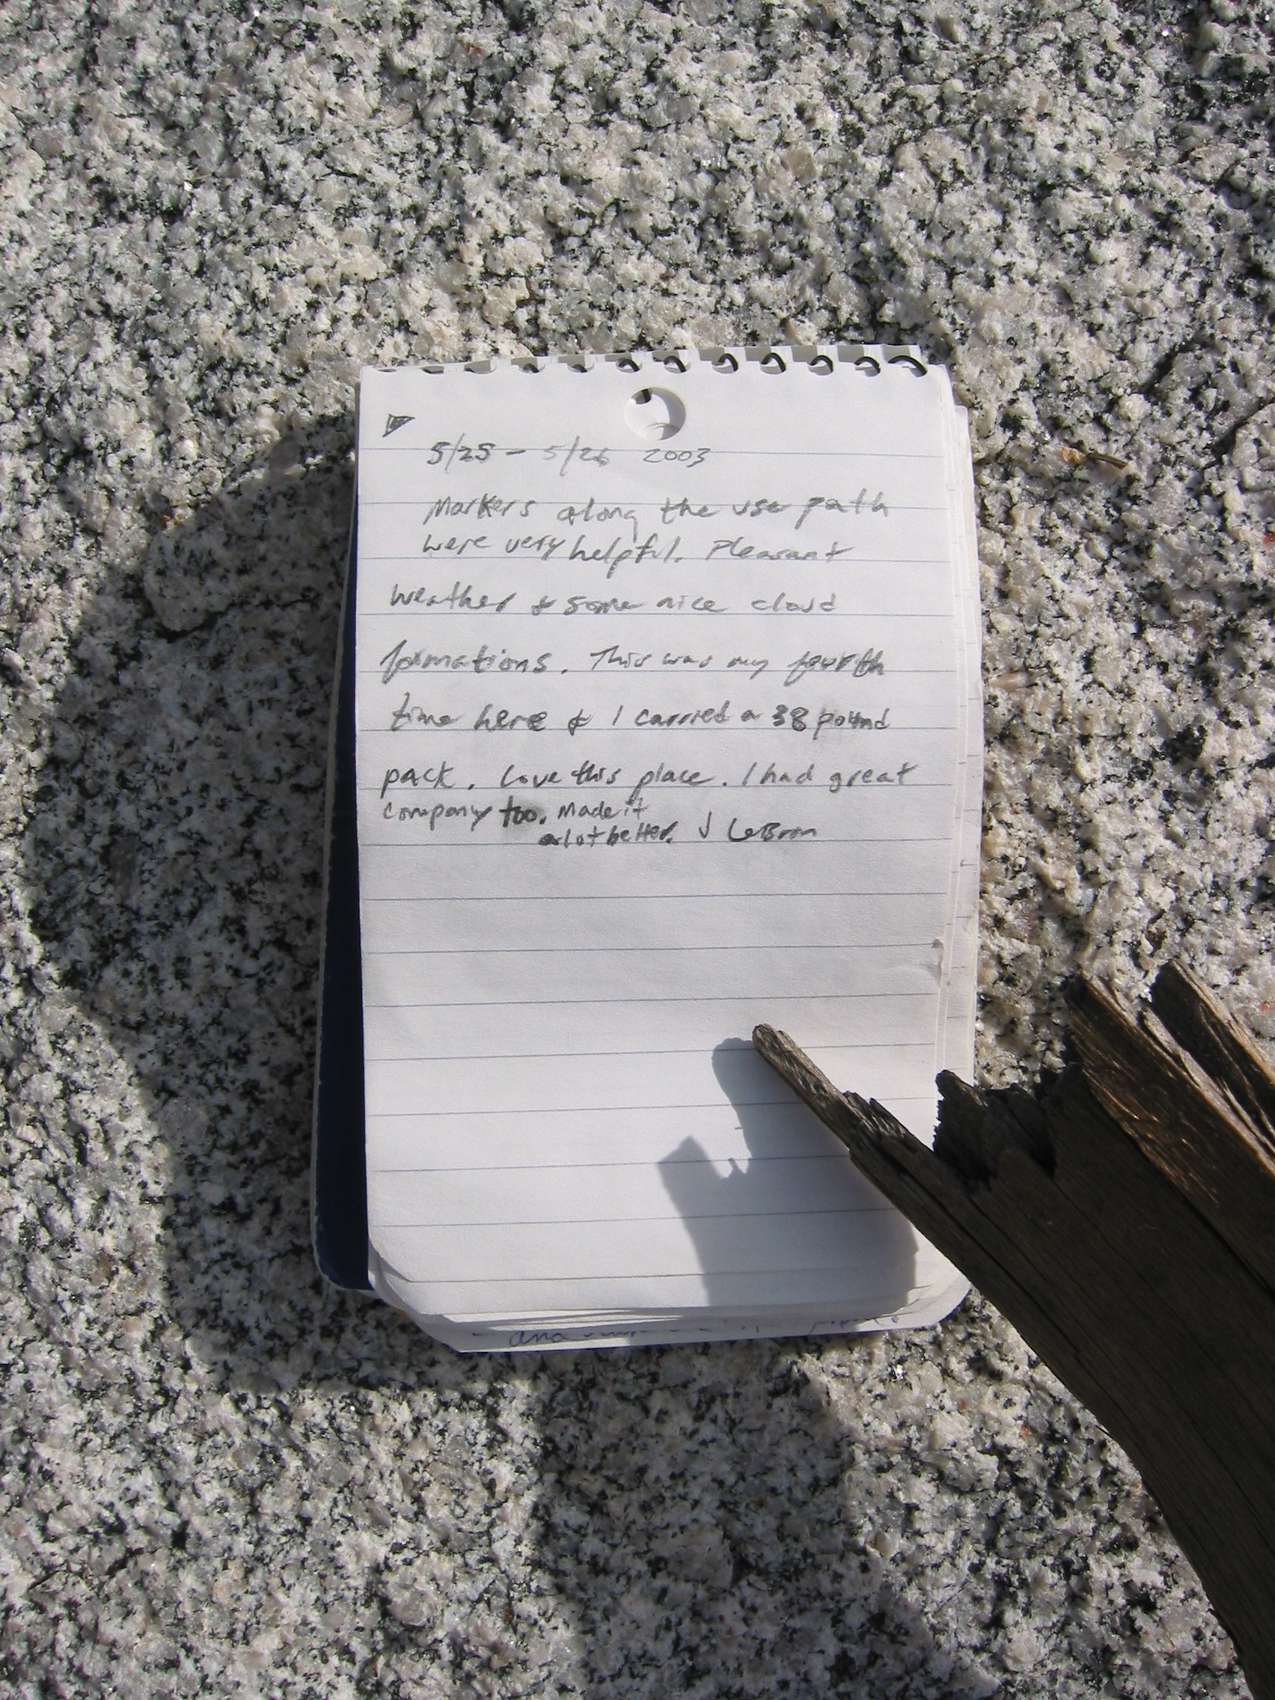 5/25 - 5/26 2003
Markers along the use path
were very helpful. Pleasant
weather & some nice cloud
formations. This was my fourth
time here & I carried a 38 pound
pack. Love this place. I had great
company too. Made it
a lot better. J LeBron